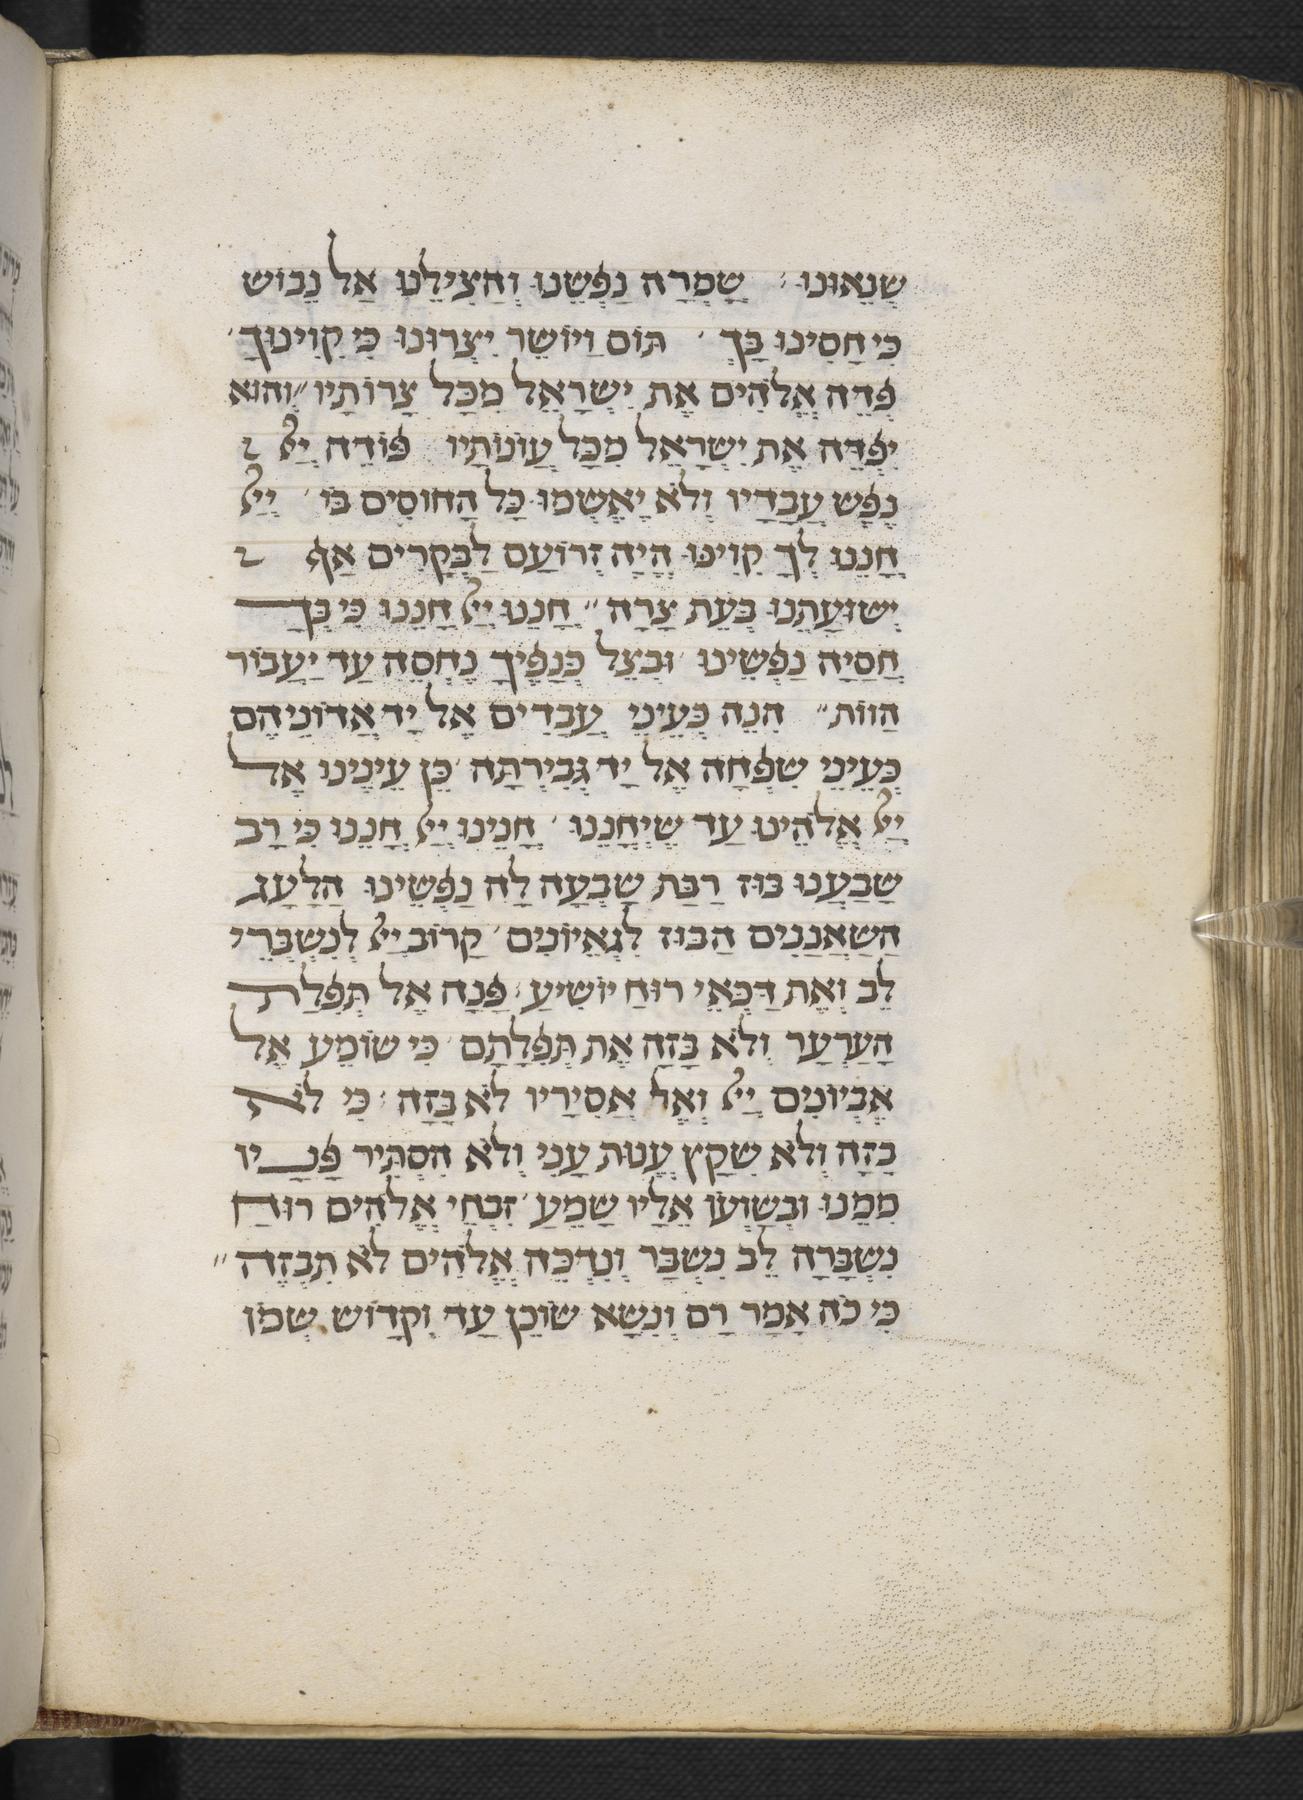 שְׂנֵאוּנוּ׳ שָׁמְרָה נַפְשֵׁנוּ וְהַצִּילֵנוּ אַל נֵבוֹשׁ
כִּי חָסִינוּ בָּךְ׳ תּוֹם וַיּוֹשֶׁר יִצְּרוּנוּ כִּי קִוִּינוּךָ׳
פְּדֵה אֱלֹהִים אֶת יִשְׂרָאֵל מִכָּל צָרוֹתָיו״ וְהוּא
יִפְדֶּה אֶת יִשְׂרָאֵל מִכָּל עֲוֹנוֹתָיו פּוֹדֶה יְיָ
נֶפֶשׁ עֲבָדָיו וְלֹא יֶאְשְׁמוּ כָּל הַחוֹסִים בּוֹ׳ יְיָ
חָנֵּנוּ לְךָ קִוִּינוּ הֱיֵה זְרוֹעָם לַבְּקָרִים אַף
יְשׁוּעָתֵנוּ בְּעֵת צָרָה״ חָנֵּנוּ יְיָ חָנֵּנוּ כִּי בְּךָ
חָסָיָה נַפְשֵׁינוּ׳ וּבְצֵל כְּנָפֶיךָ נֶחְסֶה עַד יַעֲבוֹר
הַוּוֹת״ הִנֵּה כְּעֵינֵי עֲבָדִים אֶל יַד אֲדוֹנֵיהֶם
כְּעֵינֵי שִׁפְחָה אֶל יַד גְּבִירְתָּהּ׳ כֵּן עֵינֵינוּ אֶל
יְיָ אֱלֹהֵינוּ עַד שֶׁיְּחָנֵּנוּ׳ חָנֵּינוּ יְיָ חָנֵּנוּ כִּי רַב
שָׂבַעְנוּ בוּז רַבַּת שָׂבְעָה לָהּ נַפְשֵׁינוּ הַלַּעַג
הַשַּׁאֲנַנִּים הַבּוּז לִגְאֵיוֹנִים׳ קָרוֹב יְיָ לְנִשְׁבְּרֵי
לֵב וְאֶת דַּכְּאֵי רוּחַ יוֹשִׁיעַ׳ פָּנָה אֶל תְּפִלַּת
הָעַרְעָר וְלֹא בָּזָה אֶת תְּפִלָּתָם׳ כִּי שׁוֹמֵעַ אֶל
אֶבְיוֹנִים יְיָ וְאֶל אֲסִירָיו לֹא בָּזָה׳ כִּי לֹא
בָזָה וְלֹא שִׁקַּץ עֱנוּת עָנִי וְלֹא הִסְתִּיר פָּנָיו
מִמֶּנּוּ וּבְשַׁוְּעוֹ אֵלָיו שָׁמֵעַ׳ זִבְחֵי אֱלֹהִים רוּחַ
נִשְׁבָּרָה לֵב נִשְׁבָּר וְנִדְכֶּה אֱלֹהִים לֹא תִבְזֶה״
כִּי כֹה אָמַר רָם וְנִשָּׂא שׁוֹכֵן עַד וְקָדוֹשׁ שְׁמוֹ